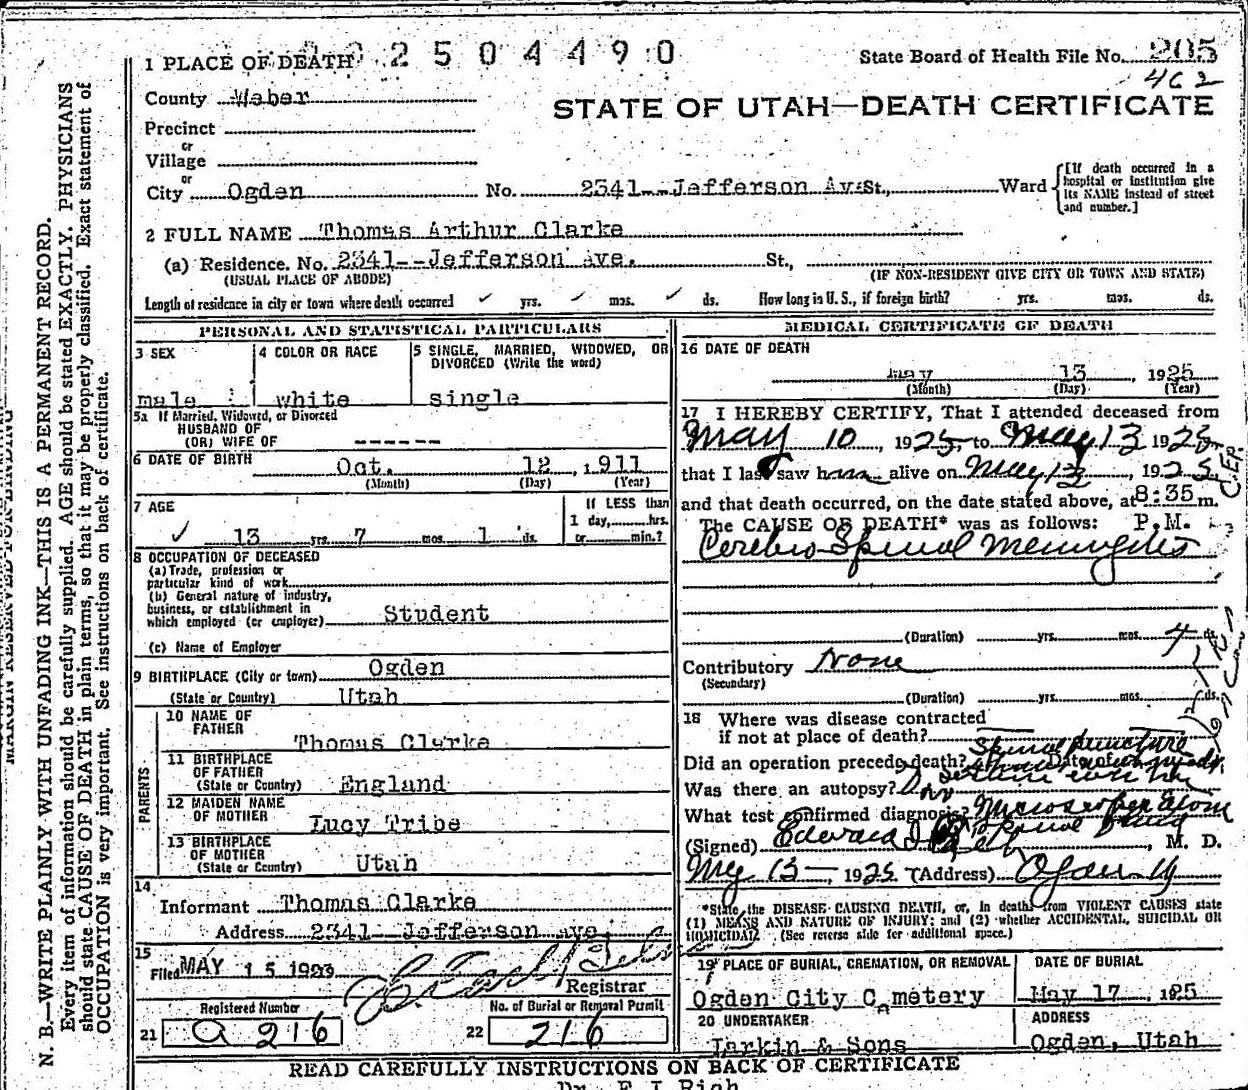 2504490
State Board of Health File No. 205
462
1 PLACE OF DEATH
County Weber
STATE OF UTAH—DEATH CERTIFICATE
Precinct
or
Village
or
City Ogden No. 2341--Jefferson Ave St., Ward
[If death occurred in a hospital or institution give its NAME instead of street and number.]
2 FULL NAME Thomas Arthur Clarke
(a) Residence. No. 2341--Jefferson Ave. St.,
(USUAL PLACE OF ABODE) (IF NON-RESIDENT GIVE CITY OR TOWN AND STATE)
Length of residence in city or town where death occurred ✓ yrs. ✓ mos. ✓ ds. How long in U. S., if foreign birth? yrs. mos. ds.
PERSONAL AND STATISTICAL PARTICULARS
3 SEX
male
4 COLOR OR RACE
white
5 SINGLE, MARRIED, WIDOWED, OR
DIVORCED (Write the word)
single
5a If Married, Widowed, or Divorced
HUSBAND OF
(OR) WIFE OF ------
6 DATE OF BIRTH Oct. 12, 1911
(Month) (Day) (Year)
7 AGE
✓ 13 yrs. 7 mos. 1 ds.
If LESS than
1 day, hrs.
or min.?
8 OCCUPATION OF DECEASED
(a) Trade, profession or
particular kind of work
(b) General nature of industry,
business, or establishment in
which employed (or employer) Student
(c) Name of Employer
9 BIRTHPLACE (City or town) Ogden
(State or Country) Utah
PARENTS
10 NAME OF
FATHER
Thomas Clarke
11 BIRTHPLACE
OF FATHER
(State or Country) England
12 MAIDEN NAME
OF MOTHER
Lucy Tribe
13 BIRTHPLACE
OF MOTHER
(State or Country) Utah
14
Informant Thomas Clarke
Address 2341--Jefferson ave.
15
Filed MAY 15 192
Registrar
Registered Number
21 a 216
No. of Burial or Removal Permit
22 216
MEDICAL CERTIFICATE OF DEATH
16 DATE OF DEATH
May 13, 1925
(Month) (Day) (Year)
17 I HEREBY CERTIFY, That I attended deceased from
May 10, 1925, to May 13 1925
that I last saw him alive on May 13, 1925
and that death occurred, on the date stated above, at 8:35 m.
The CAUSE OF DEATH* was as follows: P.M.
Cerebro Spinal Meningitis
(Duration) yrs. mos. 4 ds.
Contributory None
(Secondary)
(Duration) yrs. mos. ds.
18 Where was disease contracted
if not at place of death?
Spinal puncture
Did an operation precede death? Date of
Was there an autopsy? No
What test confirmed diagnosis? Microscopic Exam
Spinal fluid
(Signed) Edward I , M. D.
May 13, 1925 (Address) Ogden U
*State the DISEASE CAUSING DEATH, or, in deaths from VIOLENT CAUSES state
(1) MEANS AND NATURE OF INJURY; and (2) whether ACCIDENTAL, SUICIDAL OR
HOMICIDAL. (See reverse side for additional space.)
19 PLACE OF BURIAL, CREMATION, OR REMOVAL
Ogden City Cemetery
DATE OF BURIAL
May 17, 1925
20 UNDERTAKER
Larkin & Sons
ADDRESS
Ogden, Utah
READ CAREFULLY INSTRUCTIONS ON BACK OF CERTIFICATE
Dr. E I Rich
MARGIN RESERVED FOR BINDING
N. B.—WRITE PLAINLY WITH UNFADING INK—THIS IS A PERMANENT RECORD.
Every item of information should be carefully supplied. AGE should be stated EXACTLY. PHYSICIANS
should state CAUSE OF DEATH in plain terms, so that it may be properly classified. Exact statement of
OCCUPATION is very important. See instructions on back of certificate.